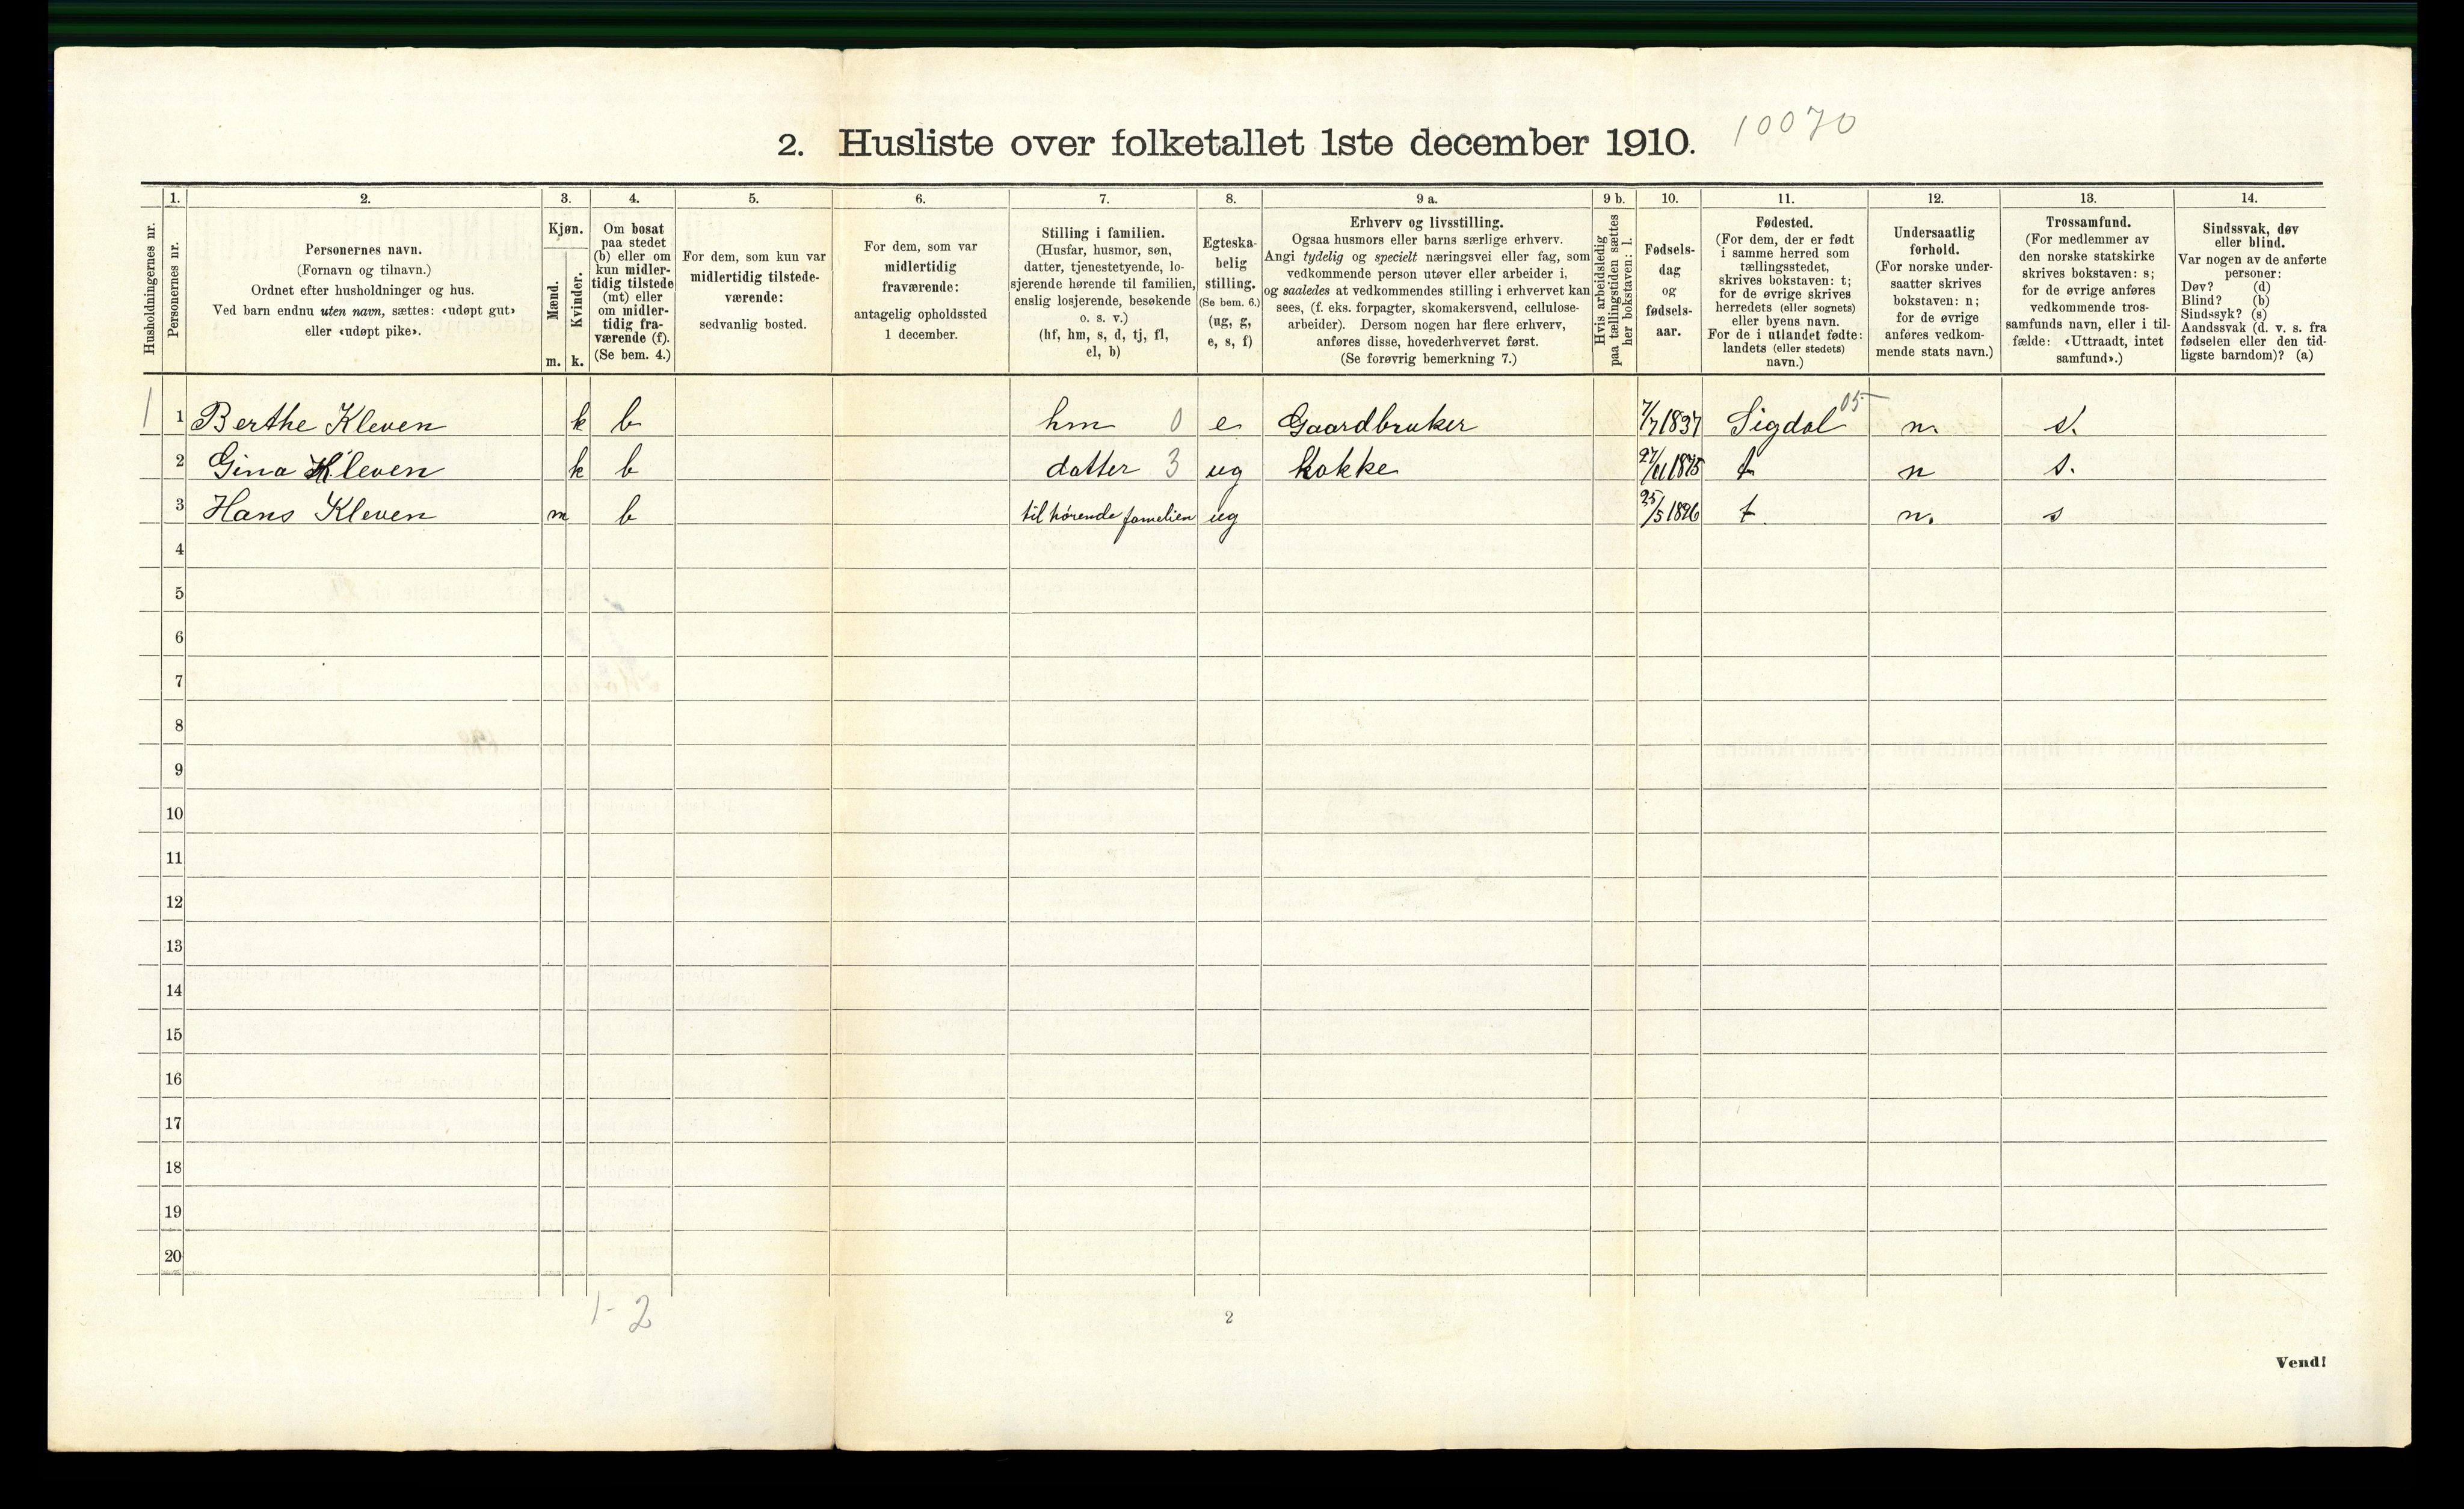 10070
2. Husliste over folketallet 1ste december 1910.
Husholdningernes nr.
1.
Personernes nr.
2.
Personernes navn.
(Fornavn og tilnavn.)
Ordnet efter husholdninger og hus.
Ved barn endnu uten navn, sættes: «udøpt gut»
eller «udøpt pike».
3.
Kjøn.
Mænd.
Kvinder.
m. k.
4.
Om bosat
paa stedet
(b) eller om
kun midler-
tidig tilstede
(mt) eller
om midler-
tidig fra-
værende (f).
(Se bem. 4.)
5.
For dem, som kun var
midlertidig tilstede-
værende:
sedvanlig bosted.
6.
For dem, som var
midlertidig
fraværende:
antagelig opholdssted
1 december.
7.
Stilling i familien.
(Husfar, husmor, søn,
datter, tjenestetyende, lo-
sjerende hørende til familien,
enslig losjerende, besøkende
o. s. v.)
(hf, hm, s, d, tj, fl,
el, b)
8.
Egteska-
belig
stilling.
(Se bem. 6.)
(ug, g,
e, s, f)
9 a.
Erhverv og livsstilling.
Ogsaa husmors eller barns særlige erhverv.
Angi tydelig og specielt næringsvei eller fag, som
vedkommende person utøver eller arbeider i,
og saaledes at vedkommendes stilling i erhvervet kan
sees, (f. eks. forpagter, skomakersvend, cellulose-
arbeider). Dersom nogen har flere erhverv,
anføres disse, hovederhvervet først.
(Se forøvrig bemerkning 7.)
9 b.
Hvis arbeidsledig
paa tællingstiden sættes
her bokstaven: l.
10.
Fødsels-
dag
og
fødsels-
aar.
11.
Fødested.
(For dem, der er født
i samme herred som
tællingsstedet,
skrives bokstaven: t;
for de øvrige skrives
herredets (eller sognets)
eller byens navn.
For de i utlandet fødte:
landets (eller stedets)
navn.)
12.
Undersaatlig
forhold.
(For norske under-
saatter skrives
bokstaven: n;
for de øvrige
anføres vedkom-
mende stats navn.)
13.
Trossamfund.
(For medlemmer av
den norske statskirke
skrives bokstaven: s;
for de øvrige anføres
vedkommende tros-
samfunds navn, eller i til-
fælde: «Uttraadt, intet
samfund».)
14.
Sindssvak, døv
eller blind.
Var nogen av de anførte
personer:
Døv? (d)
Blind? (b)
Sindssyk? (s)
Aandssvak (d. v. s. fra
fødselen eller den tid-
ligste barndom)? (a)
1 1 Berthe Kleven k b hm 0 e Gaardbruker 7/7 1837 Sigdal 05 n. s.
2 Gina Kleven k b datter 3 ug kokke 27/11 1875 t n s.
3 Hans Kleven m b til hørende famelien ug 25/5 1896 t. n. s
4
5
6
7
8
9
10
11
12
13
14
15
16
17
18
19
20
1-2
2
Vend!